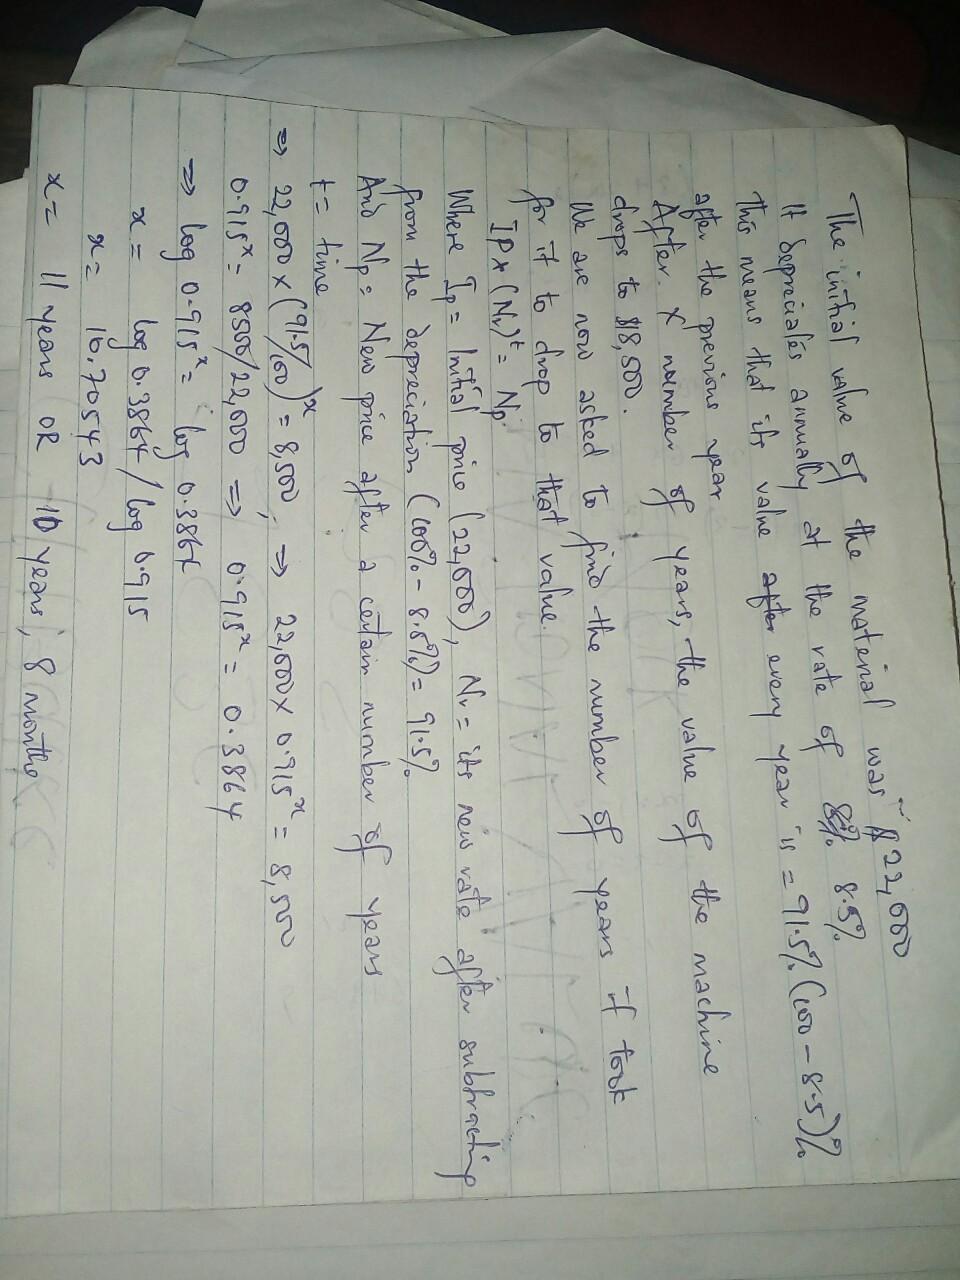 The initial value of the material was $22,000
It depreciates annually at the rate of 8% 8.5%
This means that its value after every year is = 91.5% (100 - 8.5)%
after the previous year
After x number of years, the value of the machine
drops to $8,500.
We are now asked to find the number of years it took
for it to drop to that value.
IP x (Nr)^t = Np.
Where Ip = Initial price (22,000), Nr = its new rate after subtracting
from the depreciation (100% - 8.5%) = 91.5%
And Np = New price after a certain number of years
t = time
⇒ 22,000 x (91.5/100)^x = 8,500, ⇒ 22,000 x 0.915^x = 8,500
0.915^x = 8500/22,000 ⇒ 0.915^x = 0.3864
⇒ log 0.915^x = log 0.3864
x = log 0.3864 / log 0.915
x = 10.70543
x = 11 years OR 10 years, 8 months